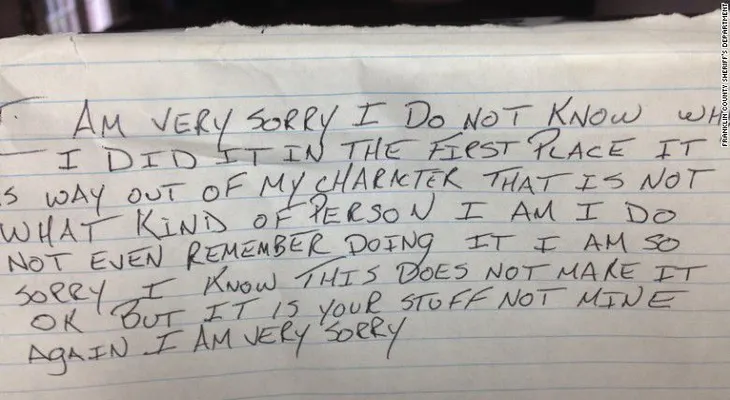 I AM VERY SORRY I DO NOT KNOW
I DID IT IN THE FIRST PLACE IT
WAY OUT OF MY CHARACTER THAT IS NOT
WHAT KIND OF PERSON I AM I DO
NOT EVEN REMEMBER DOING IT I AM SO
SORRY I KNOW THIS DOES NOT MAKE IT
OK BUT IT IS YOUR STUFF NOT MINE
AGAIN I AM VERY SORRY
FRANKLIN COUNTY SHERIFF'S DEPARTMENT